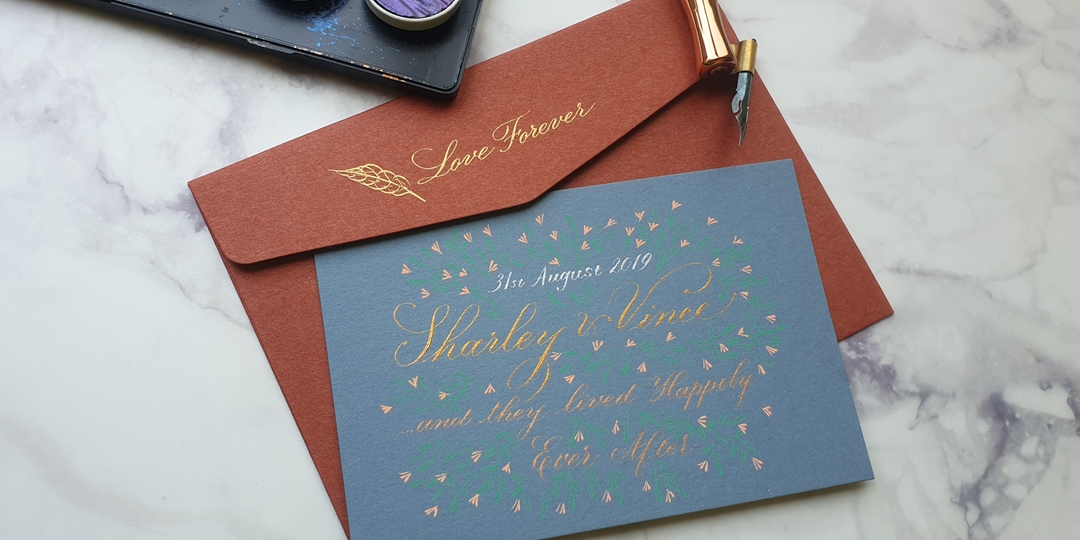 Love Forever
31st August 2019
Sharley & Vince
...and they lived Happily
Ever After